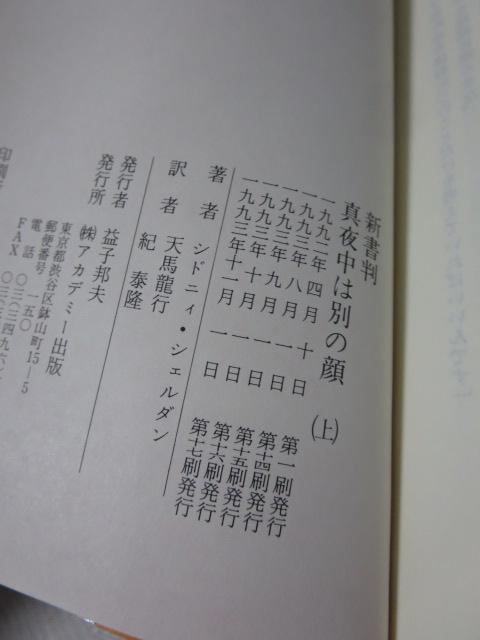 新書判
真夜中は別の顔(上)
一九九二年四月十日 第一刷発行
一九九三年八月一日 第十四刷発行
一九九三年九月一日 第十五刷発行
一九九三年十月一日 第十六刷発行
一九九三年十一月一日 第十七刷発行
著者 シドニィ・シェルダン
訳者 天馬龍行
紀 泰隆
発行者 益子邦夫
発行所 ㈱アカデミー出版
東京都渋谷区鉢山町15-5
郵便番号 一五〇
電話 〇三(三四
FAX 〇三(三四九六)